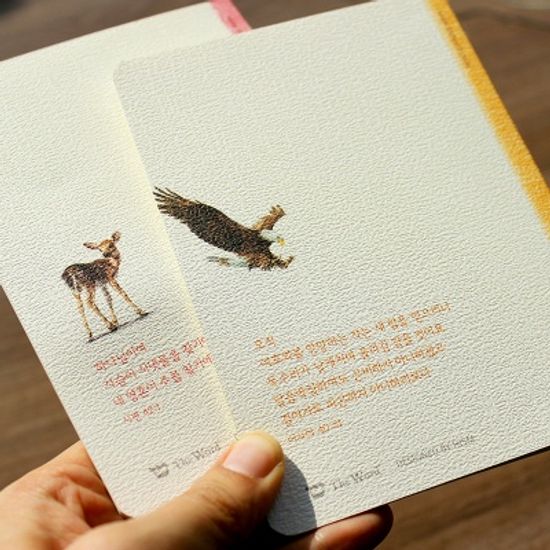 하나님이여
사슴이 시냇물을 찾기
내 영혼이 주를 찾기에
시편 42:1
The Word
오직
여호와를 앙망하는 자는 새 힘을 얻으리니
독수리가 날개치며 올라감 같을 것이요
달음박질하여도 곤비하지 아니하겠고
걸어가도 피곤하지 아니하리로다
이사야 40:31
The Word DESIGNED BY